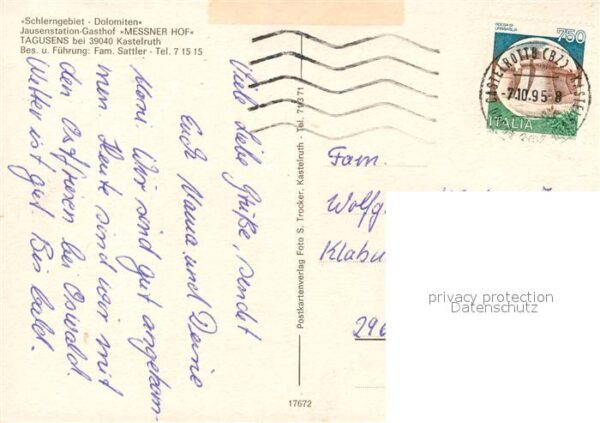 »Schlerngebiet - Dolomiten«
Jausenstation-Gasthof »MESSNER HOF«
TAGUSENS bei 39040 Kastelruth
Bes. u. Führung: Fam. Sattler - Tel. 7 15 15
Viele liebe Grüße, sendet
Euch Mama und Deine
Moni. Wir sind gut angekom-
men. Heute sind wir mit
den Ostfriesen bei Oswald.
Wetter ist gut. Bis bald.
Postkartenverlag Foto S. Trocker, Kastelruth - Tel. 71371
17672
750
ITALIA
CASTELROTTO (BZ)
-7.10.95-8
Fam.
Wolfg
Klabu
296
privacy protection
Datenschutz